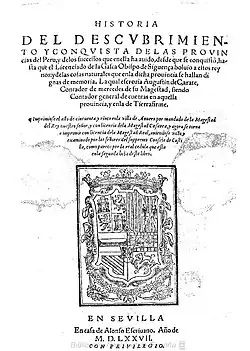 HISTORIA
DEL DESCVBRIMIEN
TO Y CONQVISTA DE LAS PROVIN
cias del Peru, y de los successos que en ella ha auido, desde que se conquistò, ha
sta que el Licenciado de la Gasca Obispo de Siguença boluio a estos rey
nos: y de las cosas naturales que en la dicha prouincia se hallan di
gnas de memoria. La qual escreuia Augustin de Çarate,
Contador de mercedes de su Magestad, siendo
Contador general de cuentas en aquella
prouincia, y en la de Tierrafirme.
el año de cincuenta y cinco en la villa de Anuers por mandado de la Magestad
del Rey nuestro señor, y con licencia de la Magestad Cesarea, y agora se torna
a imprimir con licencia de la Magestad Real,
EN SEVILLA
En casa de Alonso Escriuano. Año de
M. D. LXXVII.
CON PRIVILEGIO.